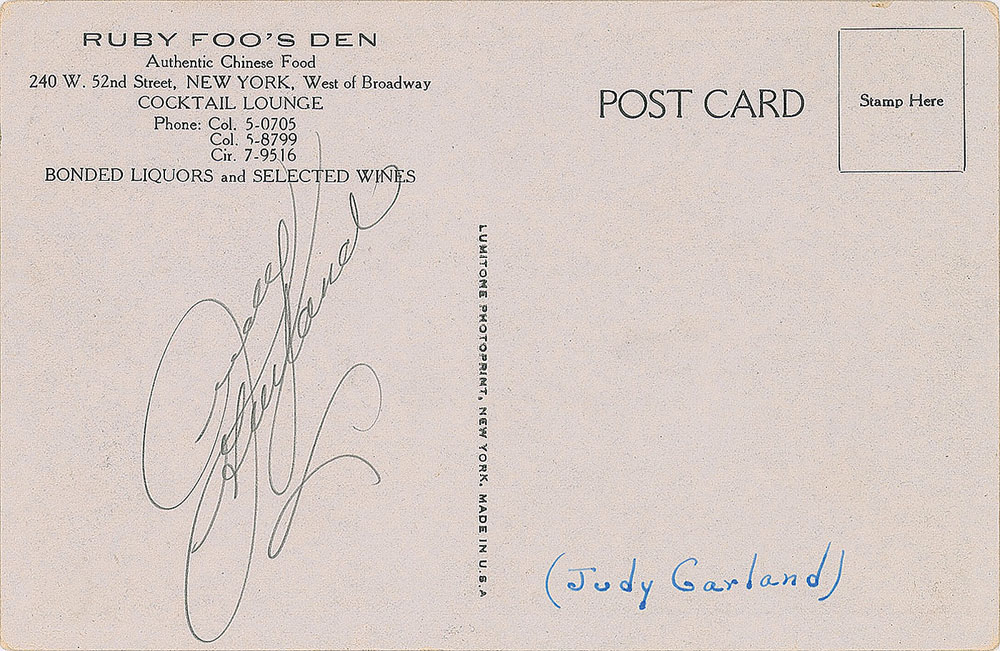 RUBY FOO'S DEN
Authentic Chinese Food
240 W. 52nd Street, NEW YORK, West of Broadway
COCKTAIL LOUNGE
Phone: Col. 5-0705
Col. 5-8799
Cir. 7-9516
BONDED LIQUORS and SELECTED WINES
Judy Garland
LUMITONE PHOTOPRINT, NEW YORK. MADE IN U.S.A
POST CARD
Stamp Here
(Judy Garland)